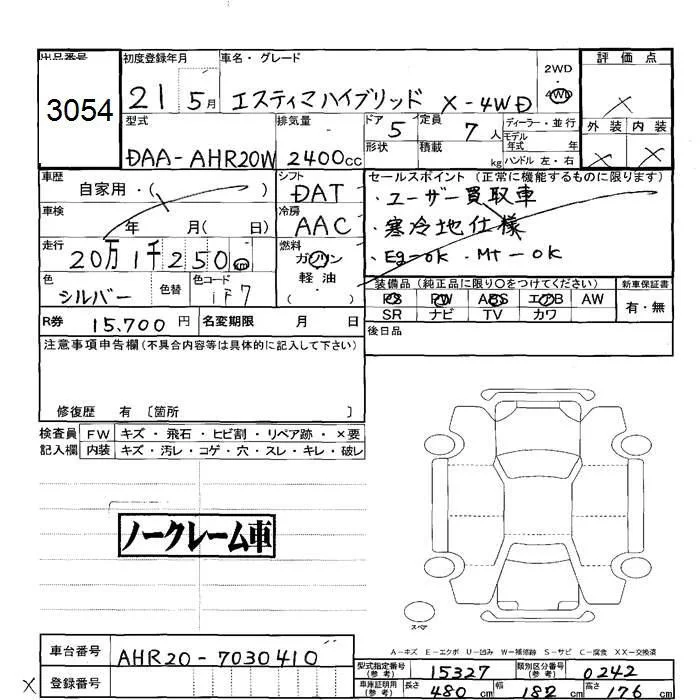 出品番号
3054
初度登録年月
21 5月
車名・グレード
エスティマハイブリッド X-4WD
2WD
・
4WD
評価点
×
外装 内装
× ×
型式
DAA-AHR20W
排気量
2400cc
ドア 5
形状
定員 7人
積載 kg
ディーラー・並行
モデル
年式 年
ハンドル 左・右
車歴
自家用・( )
車検
年 月( 日)
走行
20万1千250km
色
シルバー
色替
色コード
1F7
シフト
DAT
冷房
AAC
燃料
ガソリン
軽油
( )
セールスポイント (正常に機能するものに限ります)
・ユーザー買取車
・寒冷地仕様
・Eg-ok ・Mt-ok
装備品(純正品に限り○をつけてください)
PS PW ABS エアB AW
SR ナビ TV カワ
新車保証書
有・無
後日品
R券 15,700円
名変期限 月 日
注意事項申告欄(不具合内容等は具体的に記入して下さい)
修復歴 有 〔箇所 〕
検査員
記入欄
FW キズ・飛石・ヒビ割・リペア跡・×要
内装 キズ・汚レ・コゲ・穴・スレ・キレ・破レ
ノークレーム車
スペア
A-キズ E-エクボ U-凹み W-補修跡 S-サビ C-腐食 XX-交換済
車台番号
AHR20-7030410
× 登録番号
型式指定番号
(参考)
15327
類別区分番号
(参考)
0242
車庫証明用
(参考)
長さ 480cm 幅 182cm 高さ 176cm